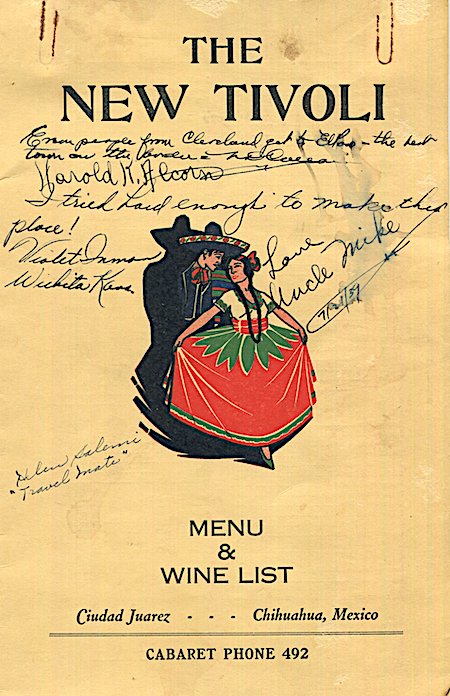 THE
NEW TIVOLI
Even people from Cleveland get to El Paso - the best
town on the border
Harold N. Alcorn
I tried hard enough to make this
place!
Violet Inman
Wichita Kans.
Love
Uncle Mike
Helen Salemi
"Travel Mate"
MENU
&
WINE LIST
Ciudad Juarez - - - Chihuahua, Mexico
CABARET PHONE 492